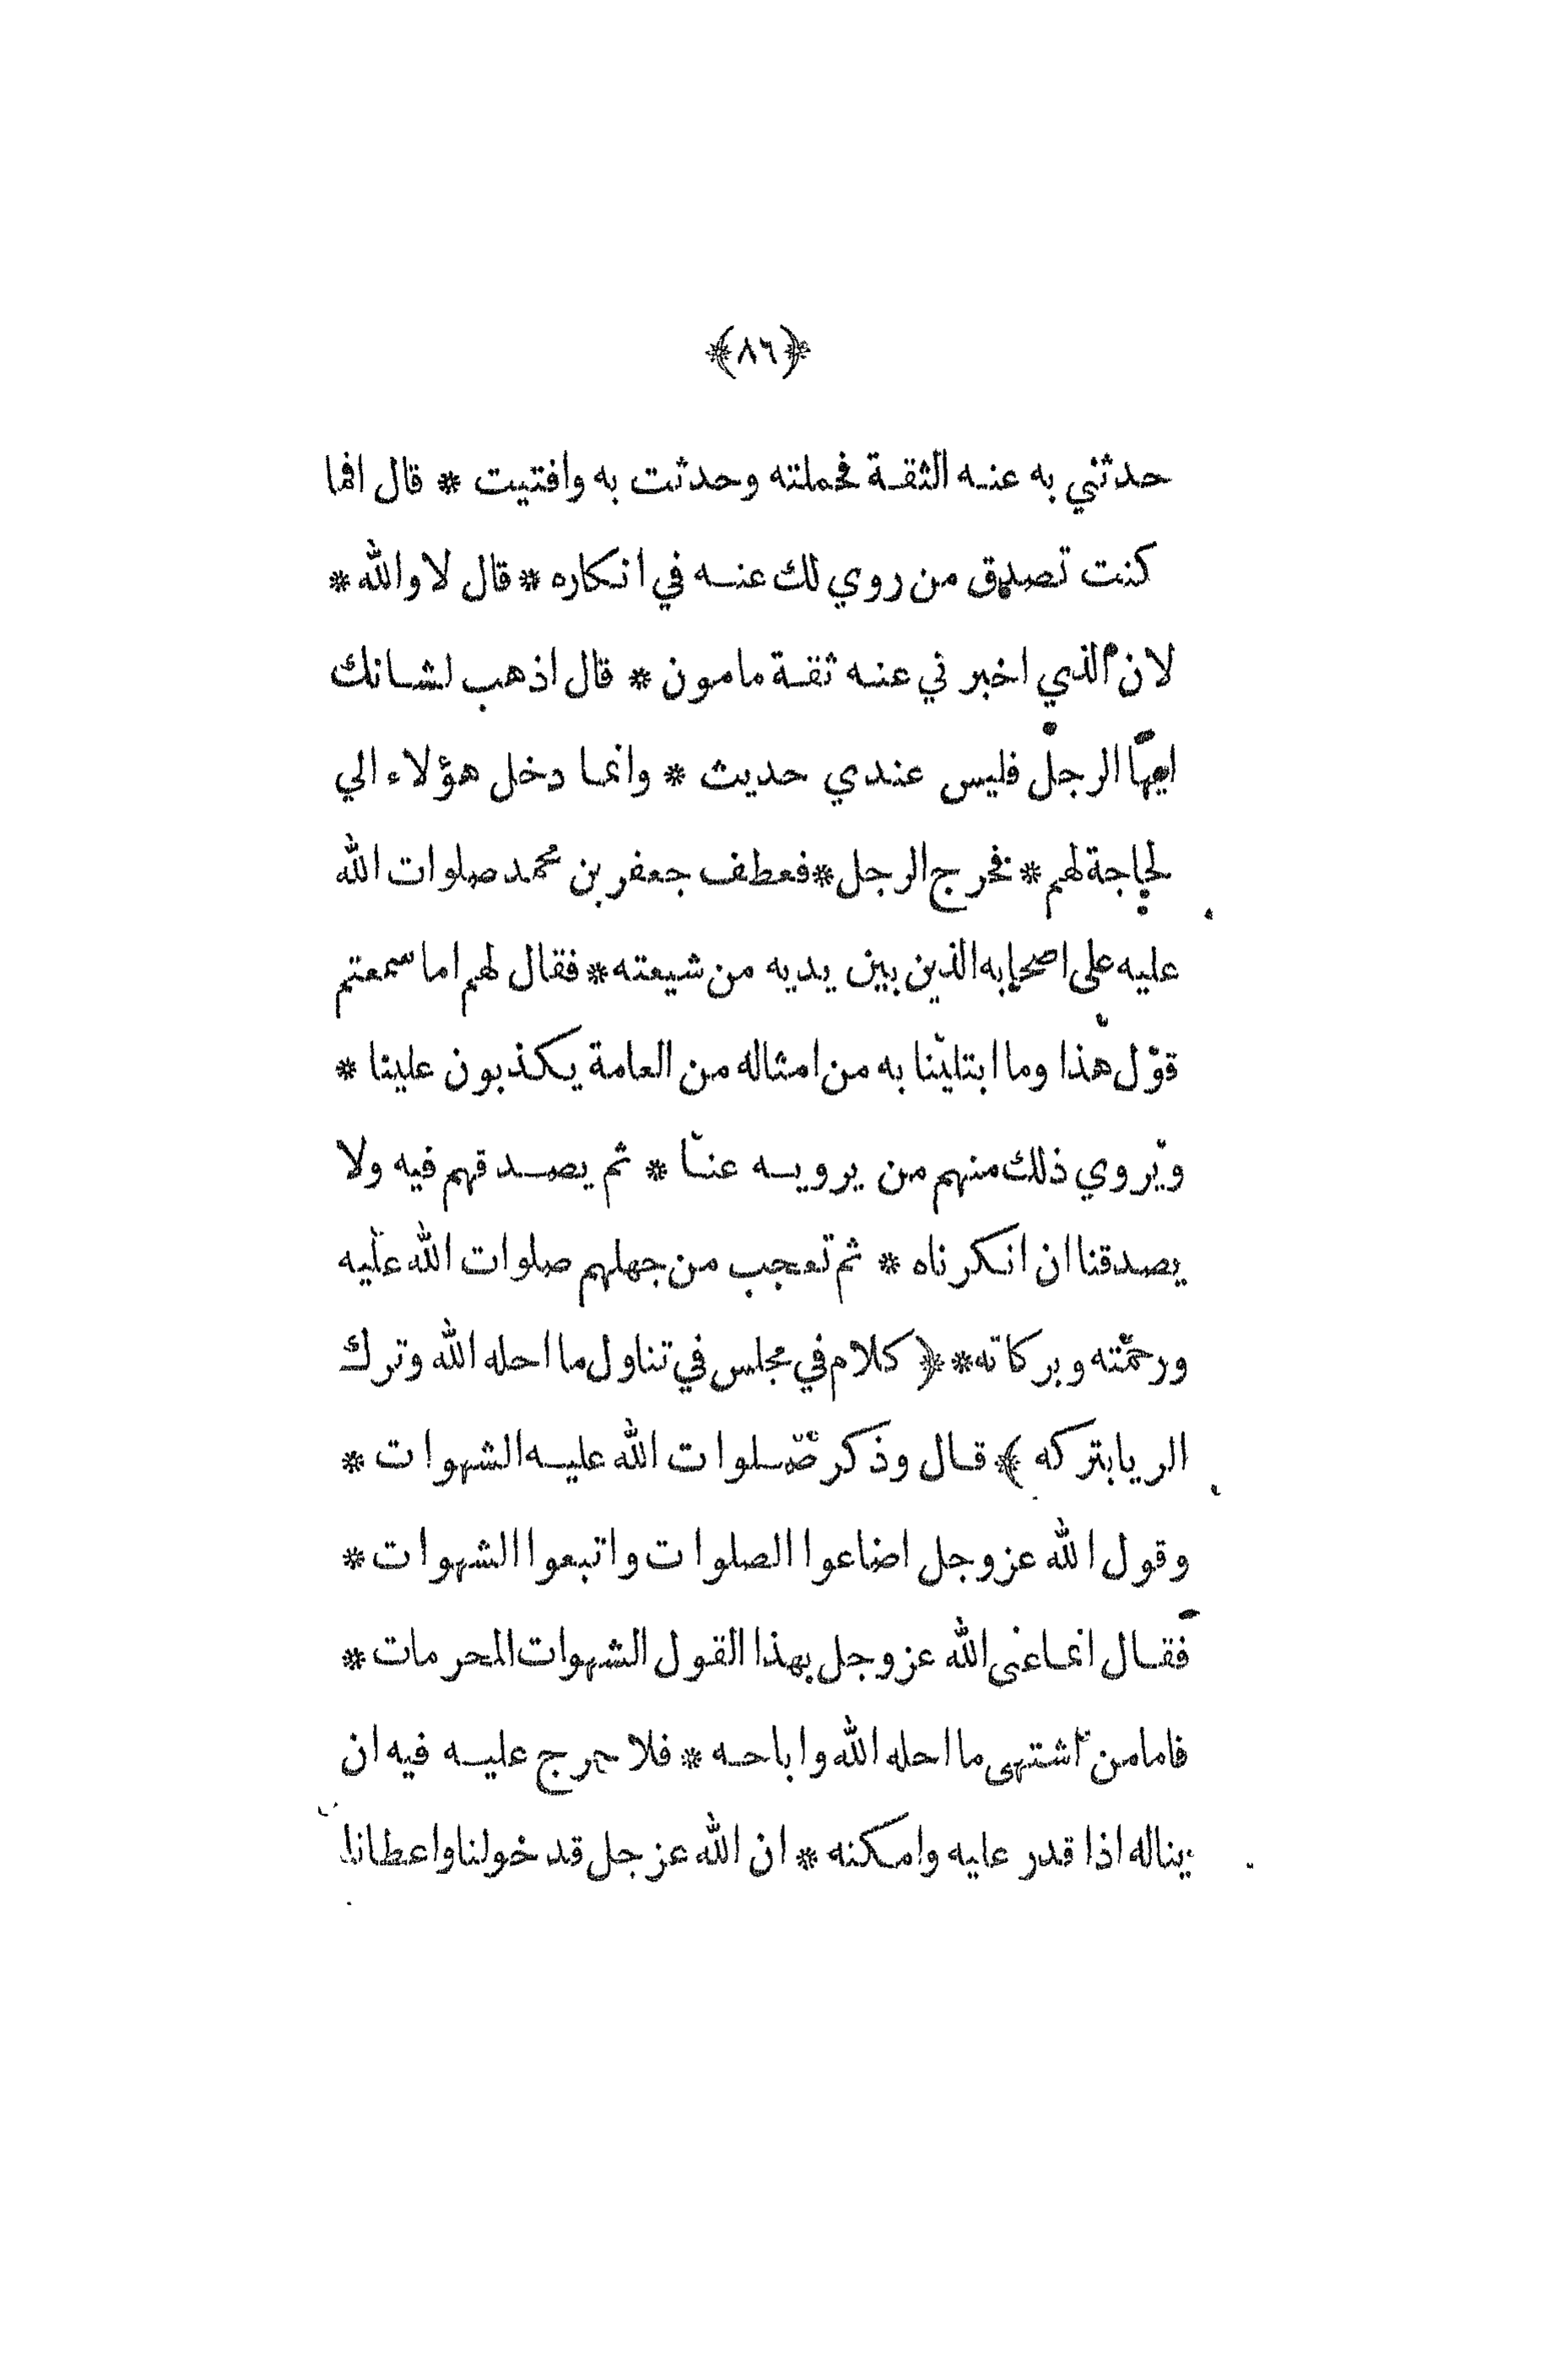 ﴿٨٦﴾
حدثني به عنه الثقة فحملته وحدثت به وافتيت * قال افما
كنت تصدق من روي لك عنه في انكاره * قال لا والله *
لان الذي اخبرني عنه ثقة مامون * قال اذهب لشانك
ايها الرجل فليس عندي حديث * وانما دخل هؤلاء الي
لحاجة لهم * فخرج الرجل * فعطف جعفر بن محمد صلوات الله
عليه على اصحابه الذين بين يديه من شيعته * فقال لهم اما سمعتم
قول هذا وما ابتلينا به من امثاله من العامة يكذبون علينا *
ويروي ذلك منهم من يرويه عنا * ثم يصدقهم فيه ولا
يصدقنا ان انكرناه * ثم تعجب من جهلهم صلوات الله عليه
ورحمته وبركاته * ﴿ كلام في مجلس في تناول ما احله الله وترك
الريا بتركه ﴾ قال وذكر صلوات الله عليه الشهوات *
وقول الله عز وجل اضاعوا الصلوات واتبعوا الشهوات *
فقال انما عنى الله عز وجل بهذا القول الشهوات المحرمات *
فاما من اشتهى ما احله الله واباحه * فلا حرج عليه فيه ان
يناله اذا قدر عليه وامكنه * ان الله عز جل قد خولنا واعطانا